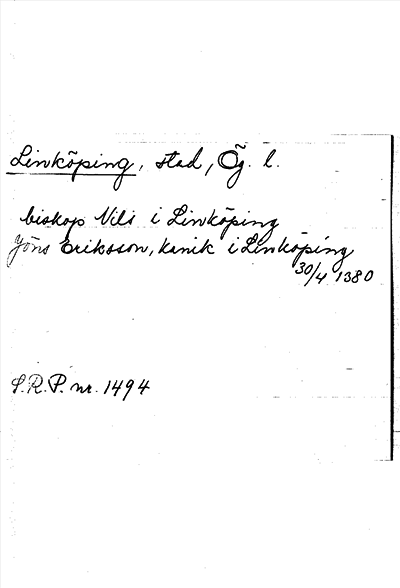 Linköping, stad, Ög. l.
biskop Nils i Linköping
Jöns Eriksson, kanik i Linköping
30/4 1380
S.R.P. nr. 1494